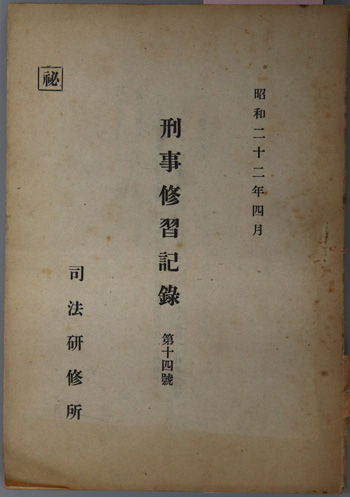 昭和二十二年四月
秘
刑事修習記錄 第十四號
司法研修所